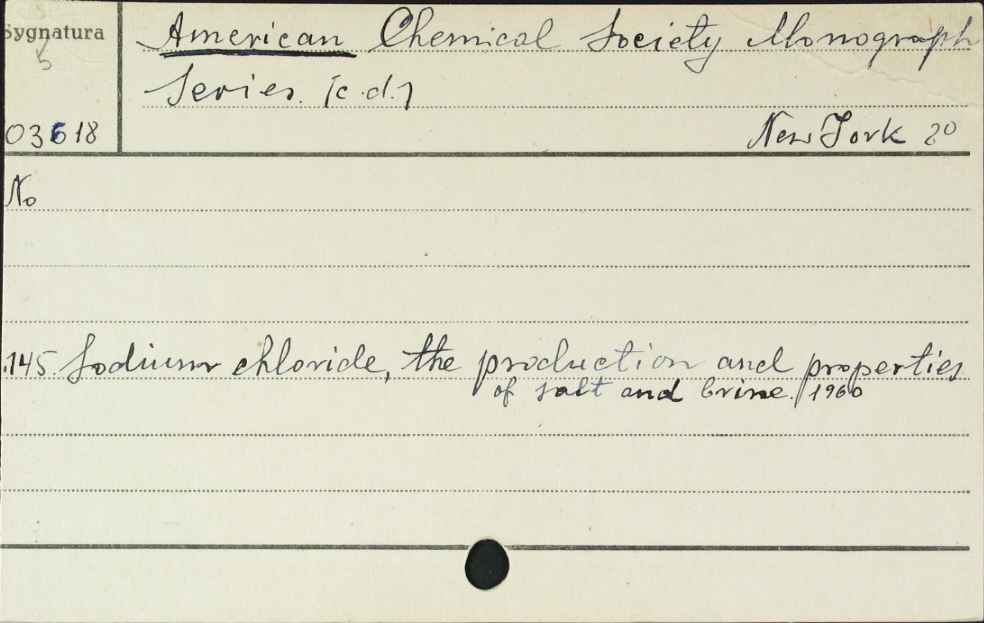 Sygnatura
5
03618
American Chemical Society Monograph
Series. [c.d.]
New York 80
No
145. Sodium chloride, the production and properties
of salt and brine. 1960